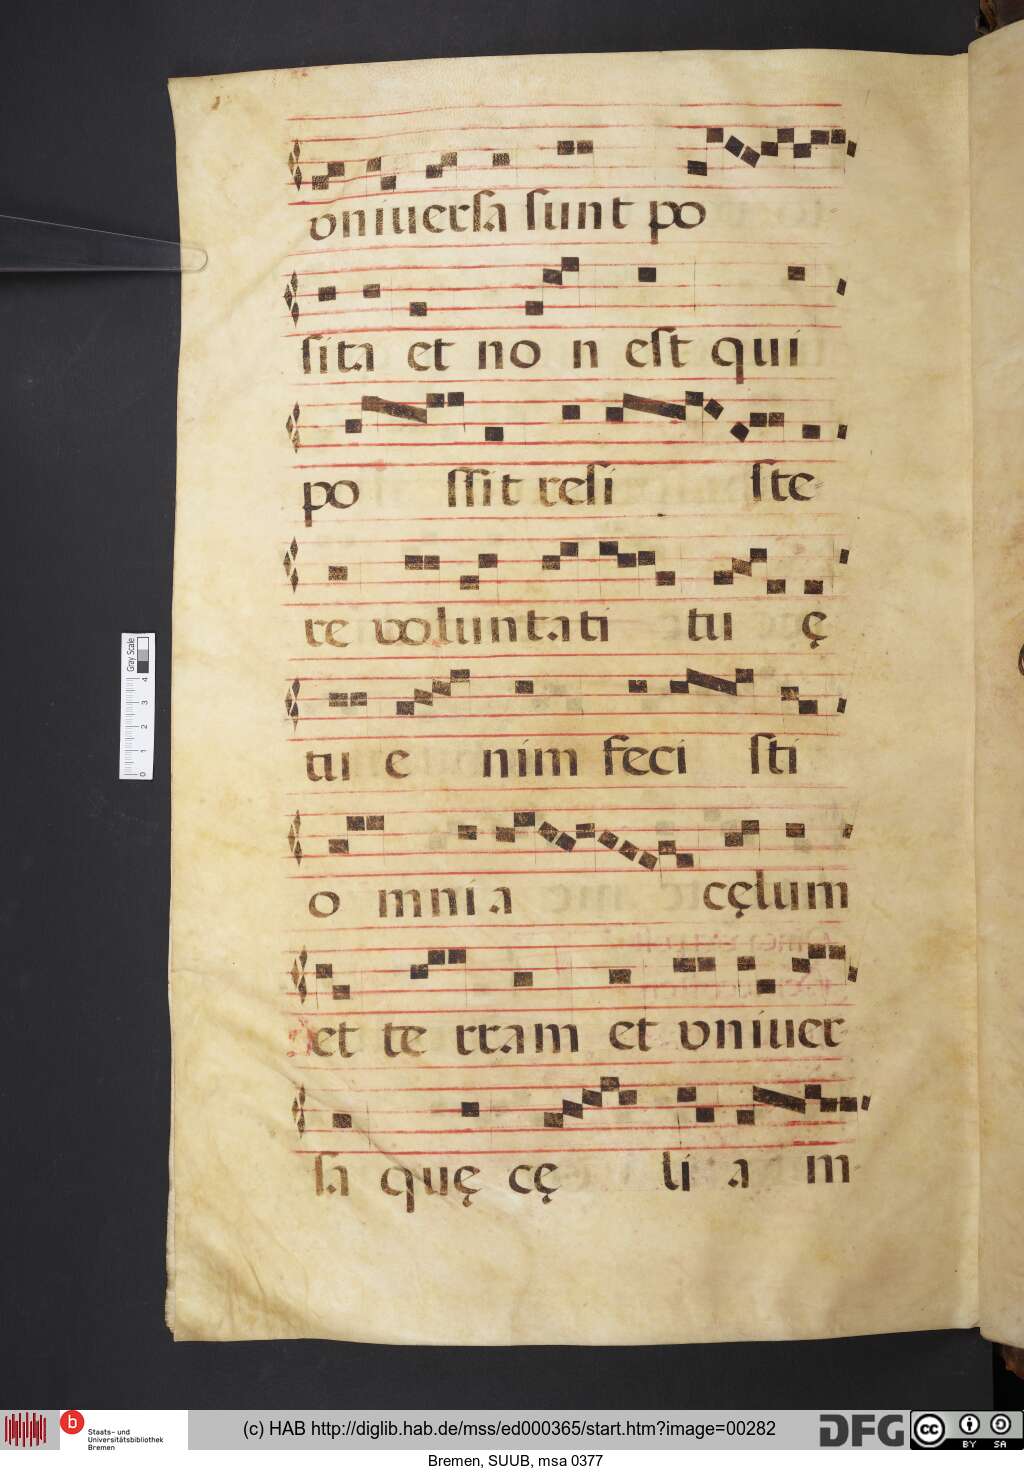 vniuersa sunt po
sita et no n est qui
po ssit resi ste
re voluntati tu ę
tu e nim feci sti
o mnia cęlum
et te rram et vniuer
sa quę cę li a m
Gray Scale
0 1 2 3 4
b
Staats- und
Universitätsbibliothek
Bremen
(c) HAB http://diglib.hab.de/mss/ed000365/start.htm?image=00282
DFG
cc BY SA
Bremen, SUUB, msa 0377